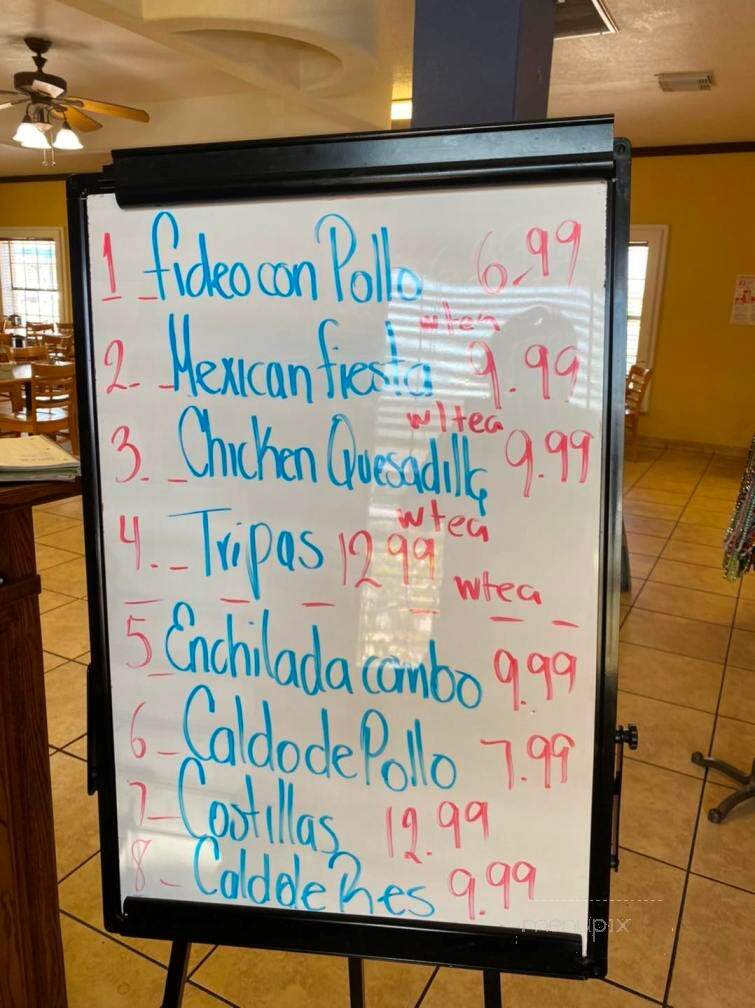 1 _ fideo con Pollo 6.99
w/tea
2. _ Mexican fiesta 9.99
w/tea
3. _ Chicken Quesadilla 9.99
wtea
4. _ Tripas 12.99
wtea
5 Enchilada combo 9.99
6 _ Caldo de Pollo 7.99
7 _ Costillas 12.99
8 _ Caldo de Res 9.99
menupix